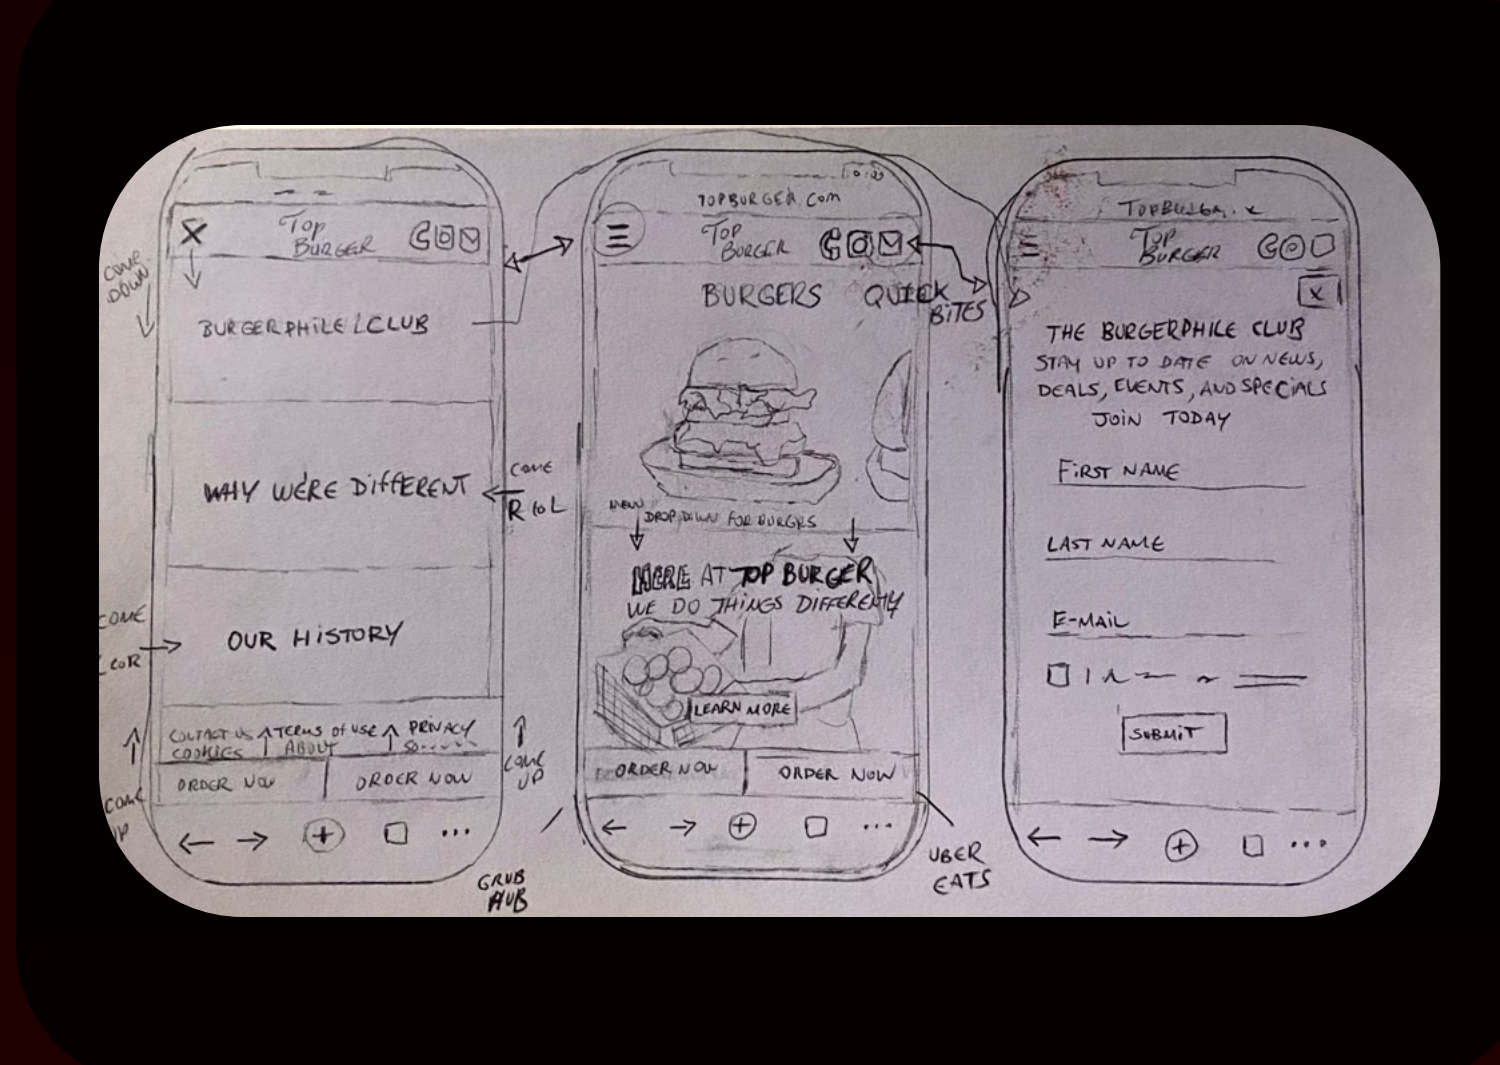 TOP
BURGER
COME
DOWN
BURGERPHILE CLUB
WHY WE'RE DIFFERENT
COME
R to L
OUR HISTORY
COME
L to R
CONTACT US TERMS OF USE PRIVACY
COOKIES ABOUT
ORDER NOW ORDER NOW
COME
UP
COME
UP
GRUB
HUB
TOPBURGER.COM
TOP
BURGER
BURGERS QUICK
BITES
MENU DROP DOWN FOR BURGERS
HERE AT TOP BURGER
WE DO THINGS DIFFERENTLY
LEARN MORE
ORDER NOW ORDER NOW
UBER
EATS
TOP
BURGER
X
THE BURGERPHILE CLUB
STAY UP TO DATE ON NEWS,
DEALS, EVENTS, AND SPECIALS
JOIN TODAY
FIRST NAME
LAST NAME
E-MAIL
SUBMIT